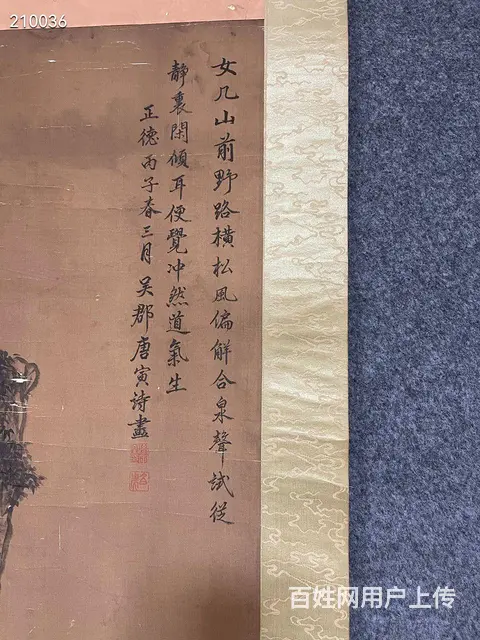 210036
女几山前野路横松風偏解合泉聲試從
静裏閑傾耳便覺冲然道氣生
正德丙子春三月吴郡唐寅詩畫
百姓网用户上传